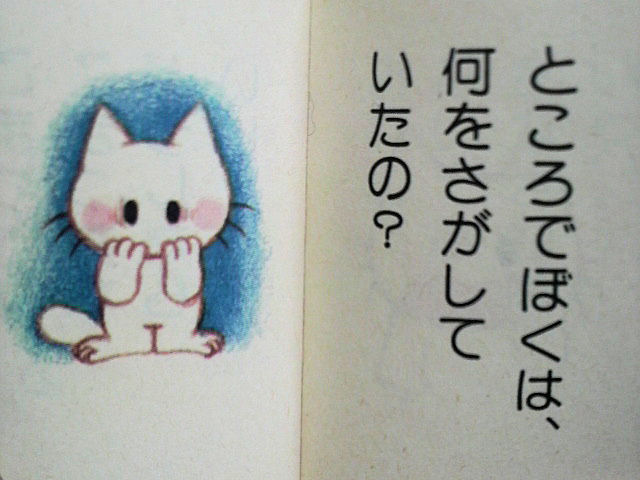 ところでぼくは、
何をさがして
いたの?